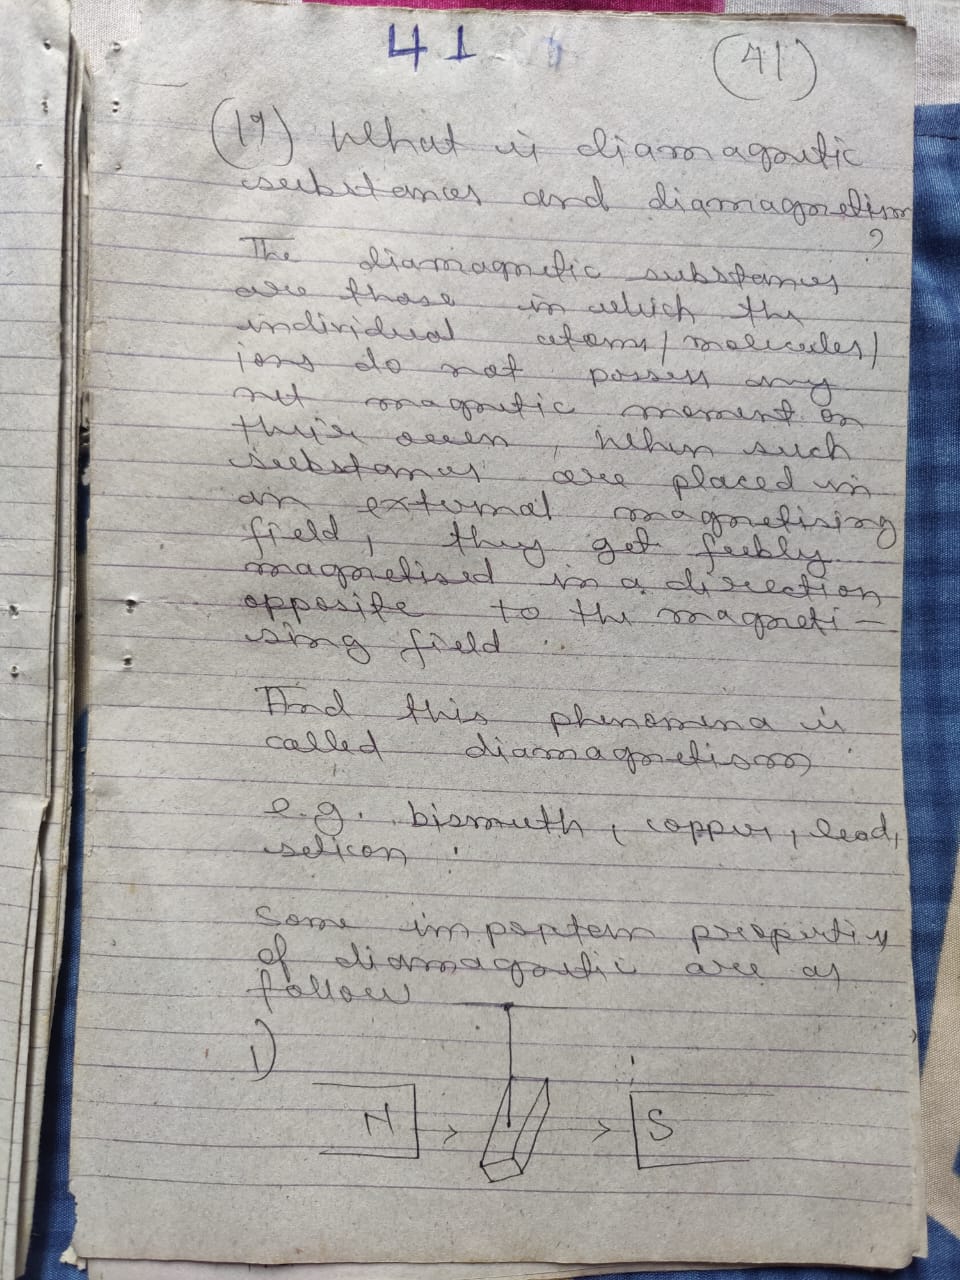 41
(41)
(19) What is diamagnetic
substances and diamagnetism
?
The diamagnetic substances
are those in which the
individual atoms/molecules/
ions do not possess any
net magnetic moment on
their own, when such
substances are placed in
an external magnetising
field, they get feebly
magnetised in a direction
opposite to the magneti-
sing field.
And this phenomena is
called diamagnetism
e.g. bismuth, copper, lead,
selicon.
Some important properties
of diamagnetic are as
follow
1)
N S